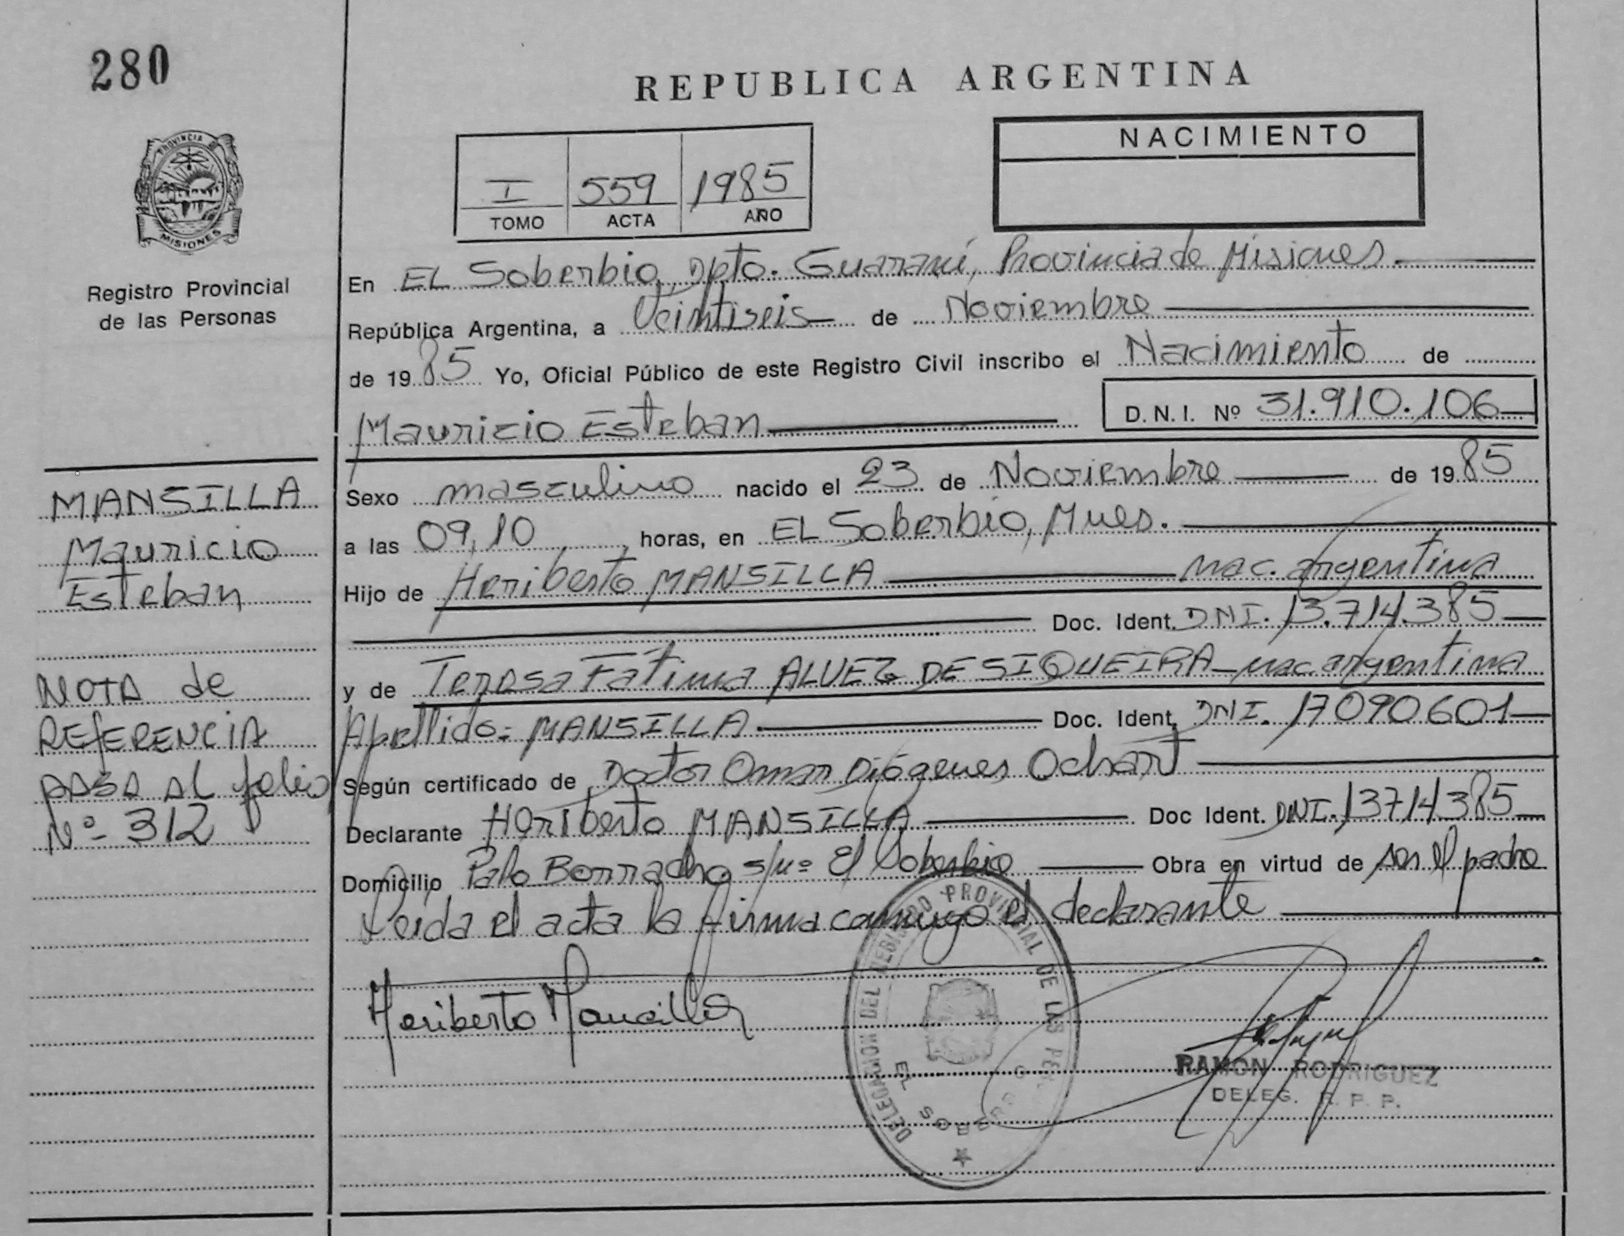 280
REPUBLICA ARGENTINA
PROVINCIA DE
MISIONES
Registro Provincial
de las Personas
I 559 1985
TOMO ACTA AÑO
NACIMIENTO
En EL Soberbio, Dpto. Guaraní, Provincia de Misiones.
República Argentina, a Veintiseis de Noviembre
de 1985 Yo, Oficial Público de este Registro Civil inscribo el Nacimiento de
Mauricio Esteban D.N.I. Nº 31.910.106
MANSILLA
Mauricio
Esteban
Sexo masculino nacido el 23 de Noviembre de 1985
a las 09,10 horas, en EL Soberbio, Mnes.
Hijo de Heriberto MANSILLA nac. argentina
Doc. Ident. DNI. 13.714.385
y de Teresa Fátima ALVEZ DE SIQUEIRA nac. argentina
Apellido: MANSILLA Doc. Ident. DNI. 17090601
NOTA de
REFERENCIA
PASA AL folio
Nº 312
Según certificado de Doctor Omar Diógenes Ochart
Declarante Heriberto MANSILLA Doc Ident. DNI. 13714385
Domicilio Palo Borracho s/nº El Soberbio Obra en virtud de ser el padre
Leida el acta la firma conmigo el declarante
Heriberto Mancilla
DELEGACION DEL REGISTRO PROVINCIAL DE LAS
EL SOBERBIO
RAMON RODRIGUEZ
DELEG. R. P. P.